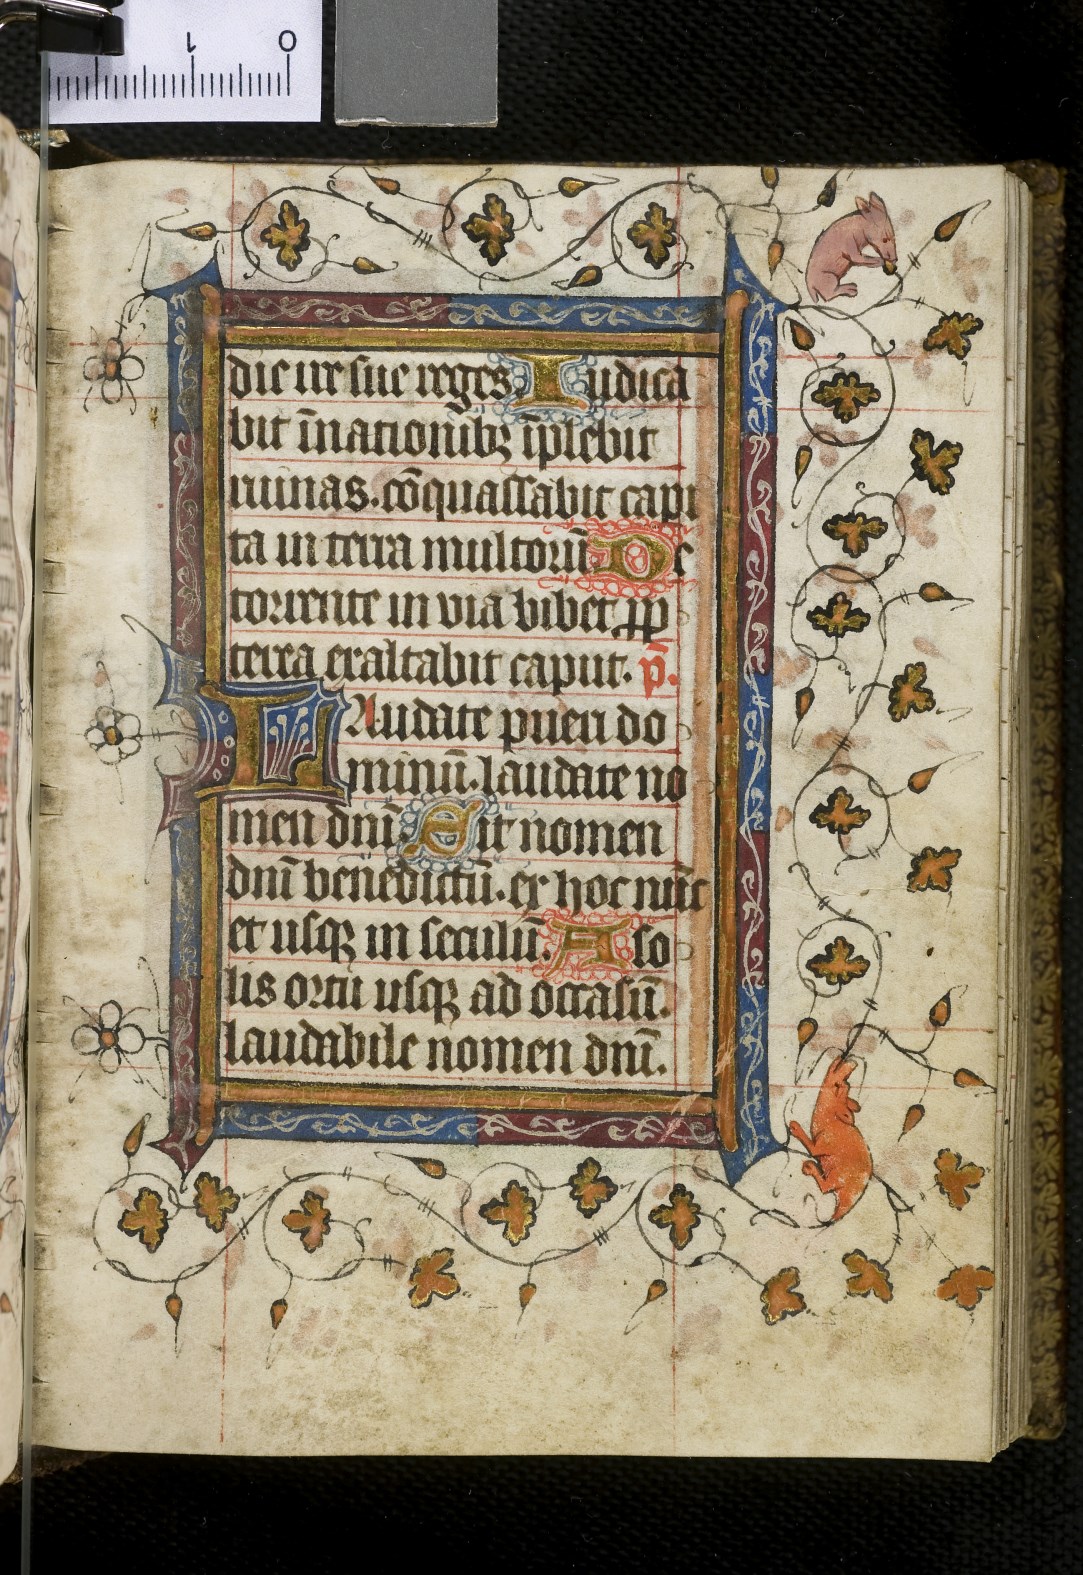 1 0
die ire sue reges Iudica
bit ī nationibꝫ īplebit
ruinas. cōquassabit capi
ta in terra multorū De
torrente in via bibet. ꝓp
terea exaltabit caput. p̄.
Laudate pueri do
minū. laudate no
men dn̄i Sit nomen
dn̄i benedictū. ex hoc nūc
et usqꝫ in seculū. A so
lis ortu usqꝫ ad occasū.
laudabile nomen dn̄i.